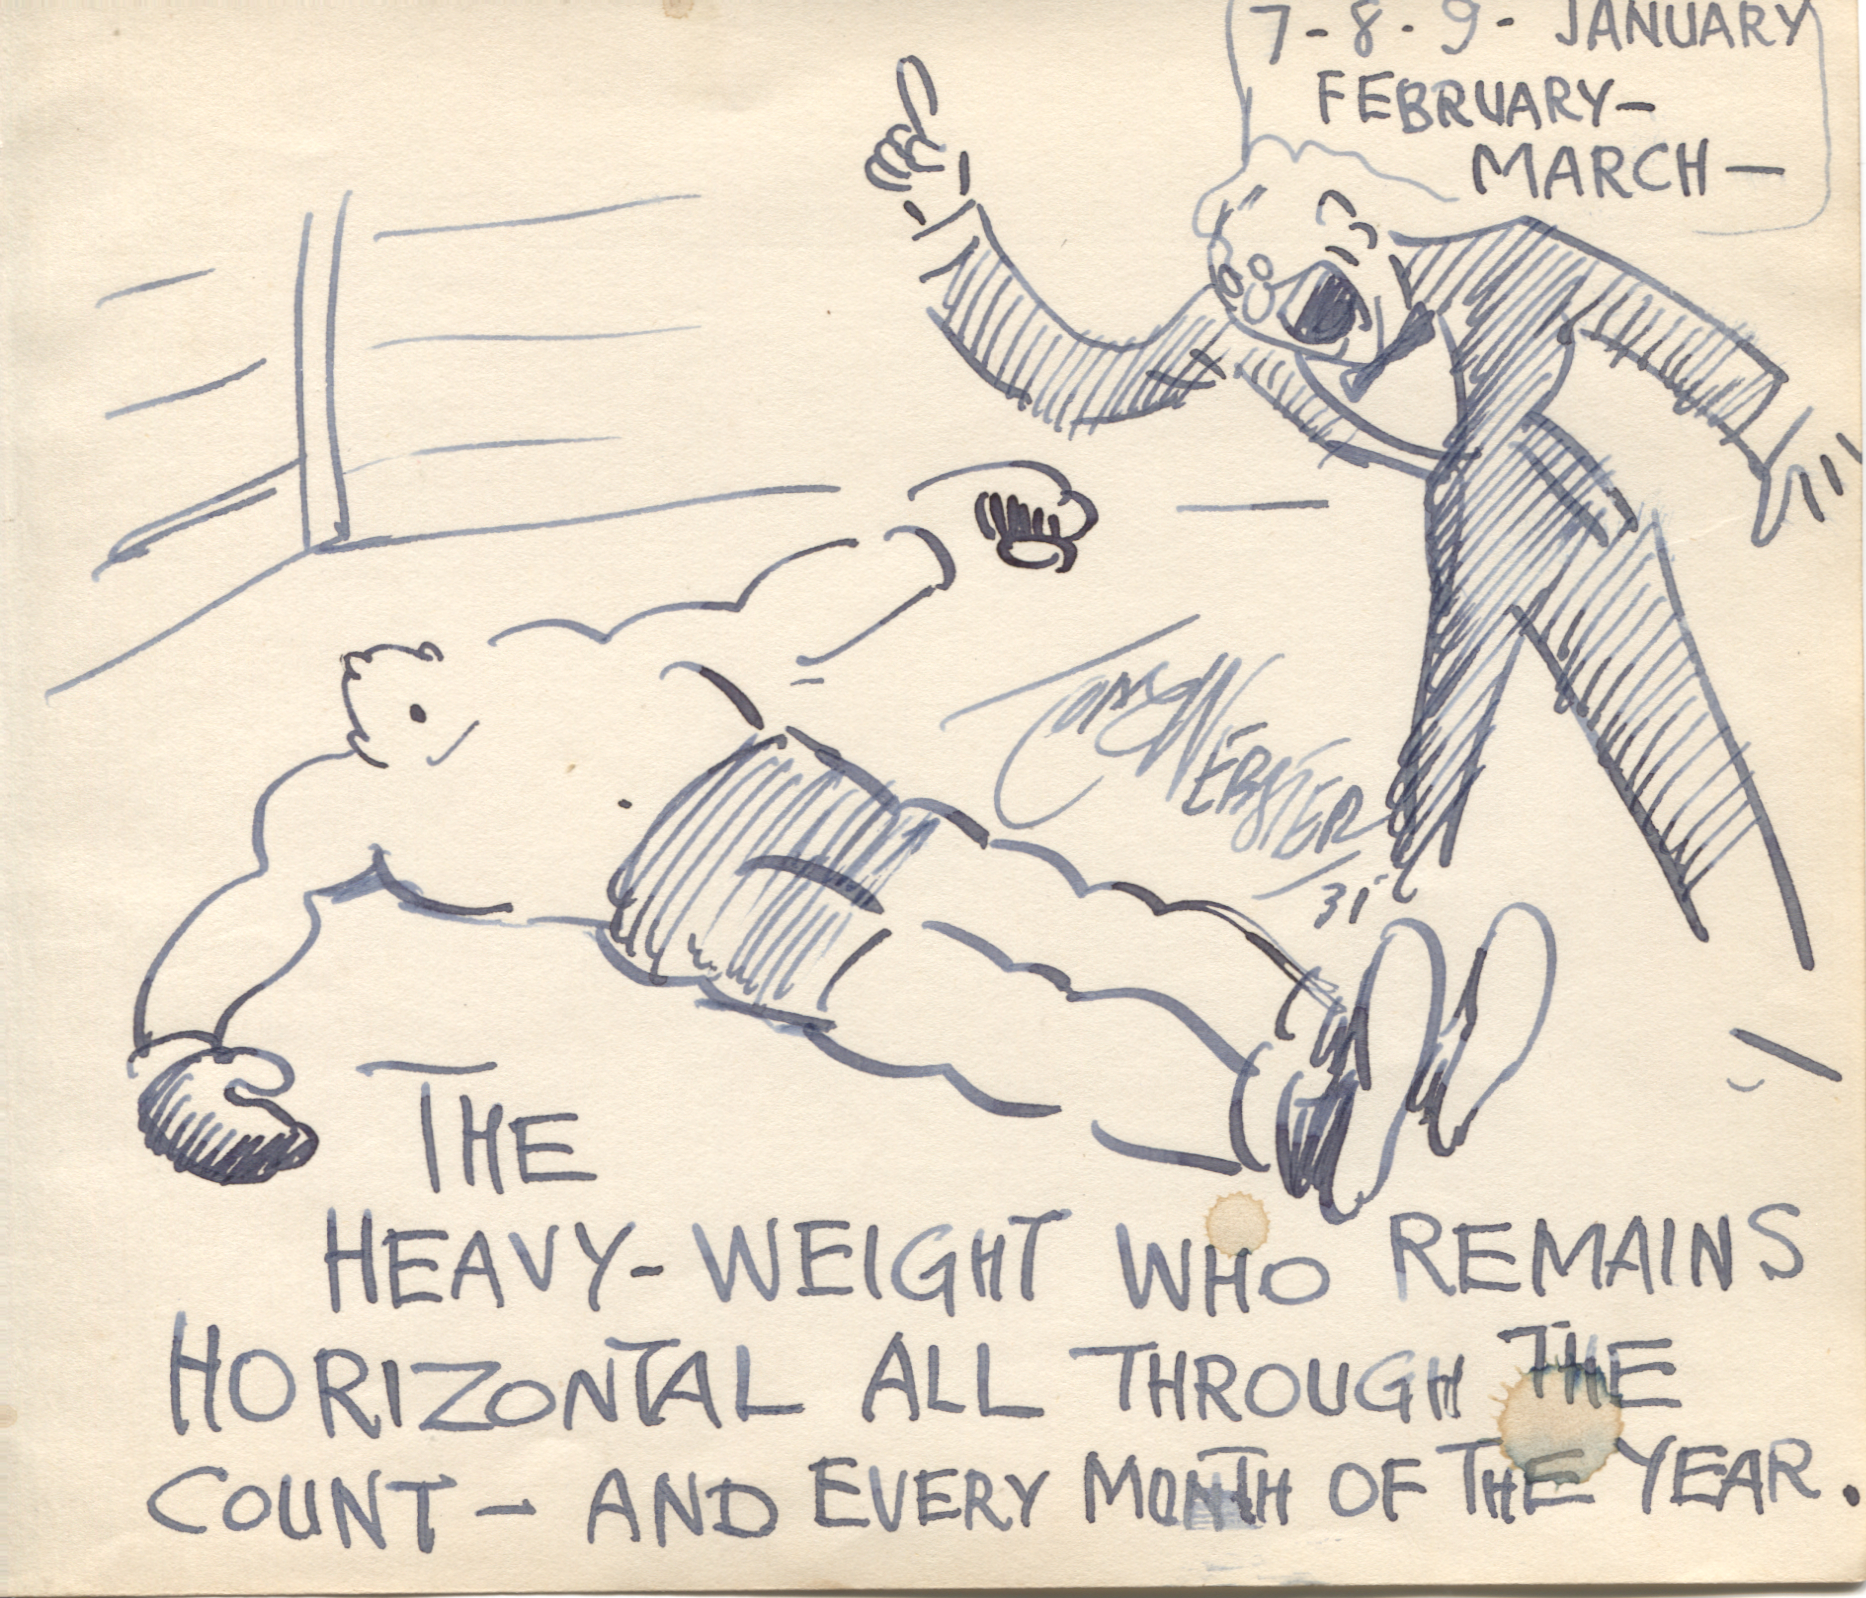 7-8-9- JANUARY
FEBRUARY-
MARCH—
TOM WEBSTER
31
THE
HEAVY-WEIGHT WHO REMAINS
HORIZONTAL ALL THROUGH THE
COUNT - AND EVERY MONTH OF THE YEAR.